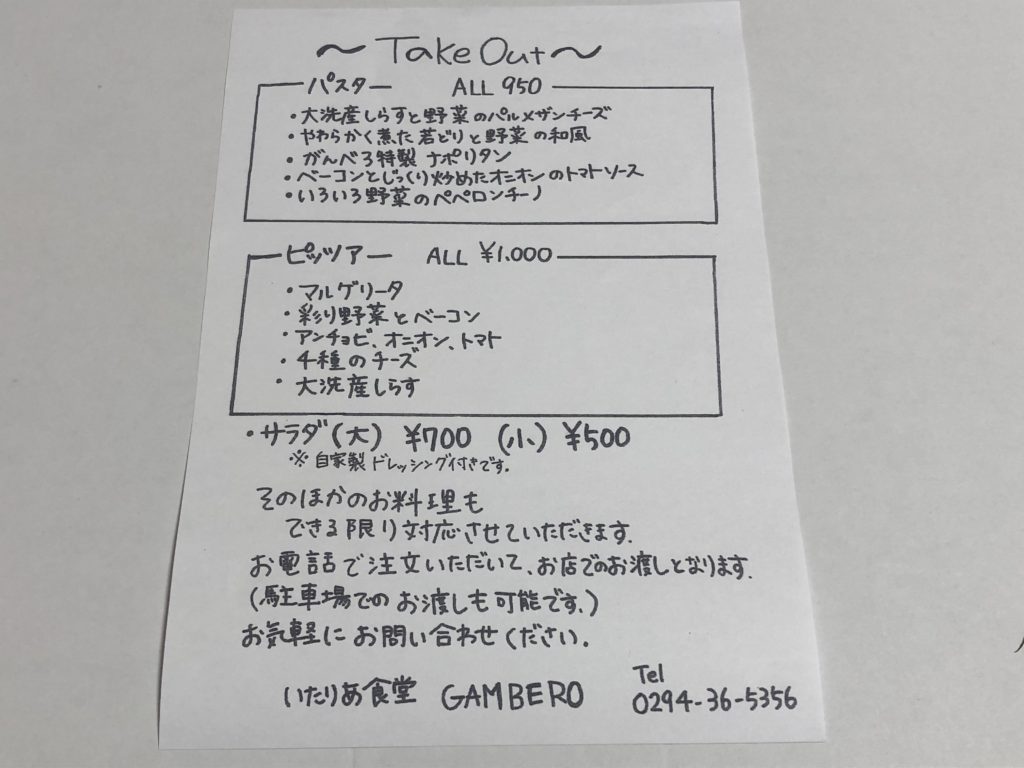 ～Take Out～
パスタ ALL 950
・大洗産しらすと野菜のパルメザンチーズ
・やわらかく煮た若どりと野菜の和風
・がんべろ特製ナポリタン
・ベーコンとじっくり炒めたオニオンのトマトソース
・いろいろ野菜のペペロンチーノ
ピッツア ALL ¥1.000
・マルゲリータ
・彩り野菜とベーコン
・アンチョビ、オニオン、トマト
・4種のチーズ
・大洗産しらす
・サラダ(大) ¥700 (小) ¥500
※自家製ドレッシング付きです。
そのほかのお料理も
できる限り対応させていただきます。
お電話で注文いただいて、お店でのお渡しとなります。
(駐車場でのお渡しも可能です。)
お気軽にお問い合わせください。
いたりあ食堂 GAMBERO
Tel
0294-36-5356